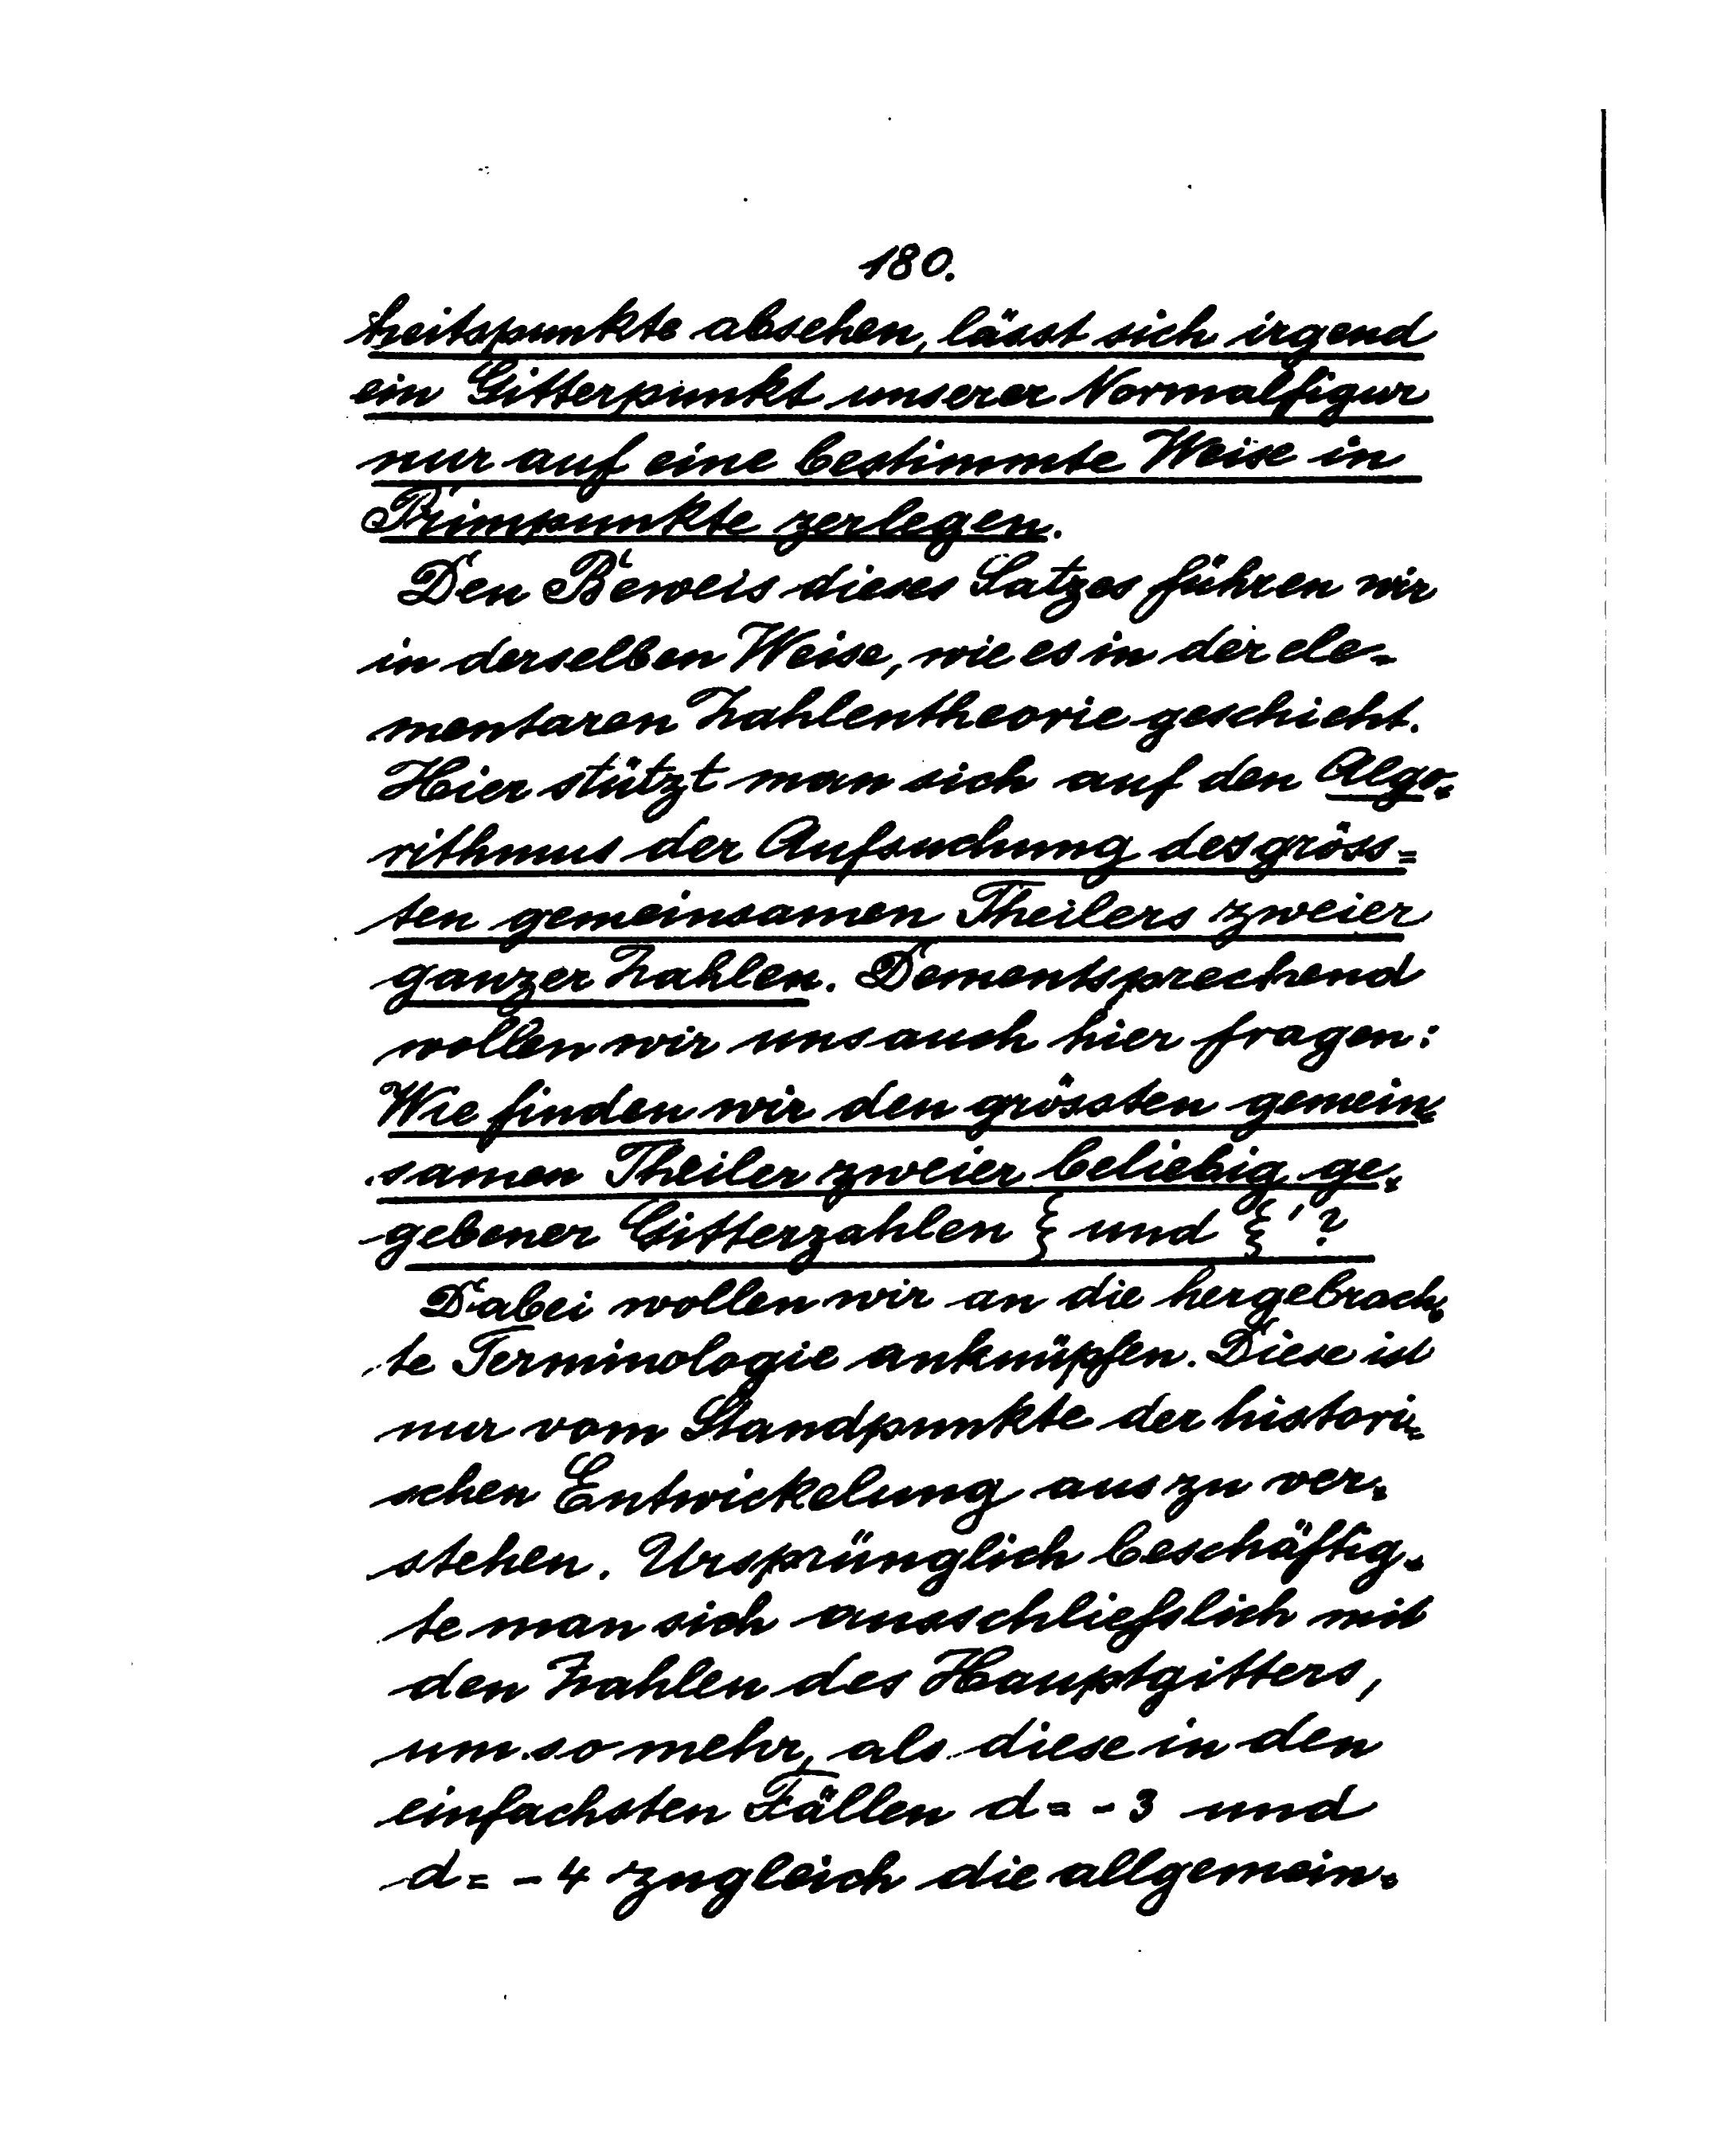 180.
heitspunkte absehen, lässt sich irgend
ein Gitterpunkt unserer Normalfigur
nur auf eine bestimmte Weise in
Primpunkte zerlegen.
Den Beweis dieses Satzes führen wir
in derselben Weise, wie es in der ele-
mentaren Zahlentheorie geschieht.
Hier stützt man sich auf den Algo-
rithmus der Aufsuchung des gröss-
ten gemeinsamen Theilers zweier
ganzer Zahlen. Dementsprechend
wollen wir uns auch hier fragen:
Wie finden wir den grössten gemein-
samen Theiler zweier beliebig ge-
gebener Gitterzahlen ξ und ξ' ?
Dabei wollen wir an die hergebrach-
te Terminologie anknüpfen. Diese ist
nur vom Standpunkte der histori-
schen Entwickelung aus zu ver-
stehen. Ursprünglich beschäftig-
te man sich ausschließlich mit
den Zahlen des Hauptgitters,
um so mehr, als diese in den
einfachsten Fällen d = -3 und
d = -4 zugleich die allgemein-